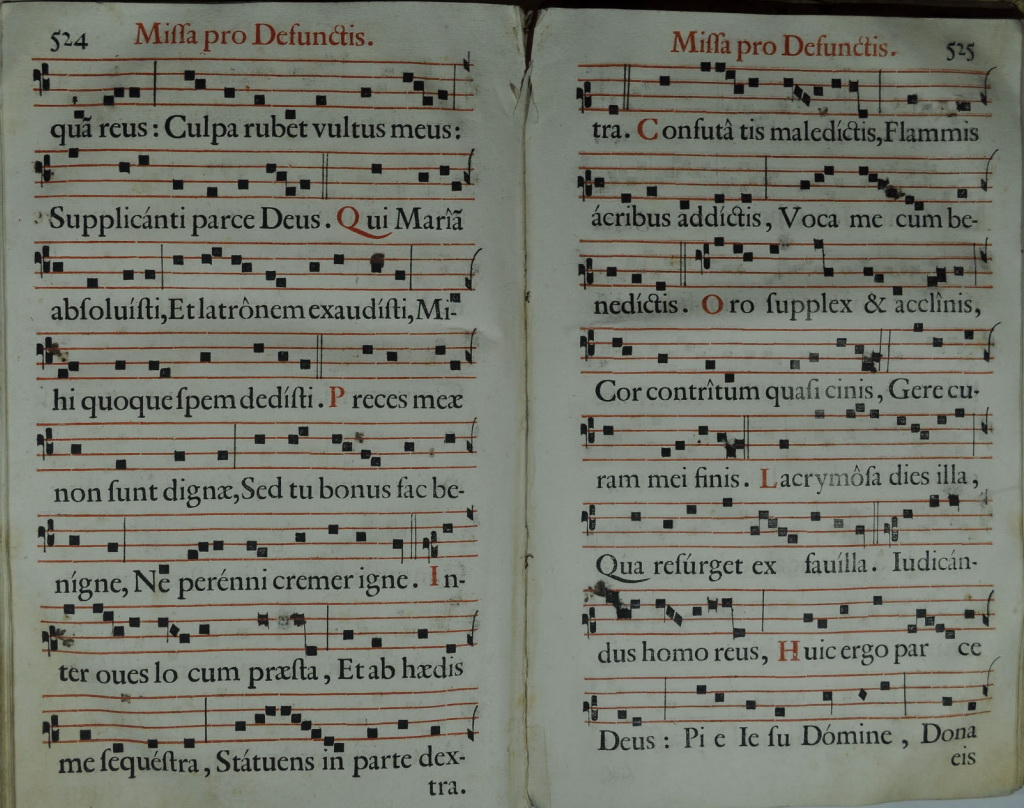 524 Miſſa pro Defunctis.
quã reus : Culpa rubet vultus meus :
Supplicánti parce Deus . Qui Marîã
abſoluíſti, Et latrônem exaudíſti, Mi-
hi quoque ſpem dedíſti . P reces meæ
non ſunt dignæ, Sed tu bonus fac be-
nígne, Ne perénni cremer igne . I n-
ter oues lo cum præſta , Et ab hædis
me ſequéſtra , Státuens in parte dex-
tra.
Miſſa pro Defunctis. 525
tra. C onfutâ tis maledíctis, Flammis
ácribus addíctis , Voca me cum be-
nedíctis . O ro ſupplex & acclînis,
Cor contrîtum quaſi cinis , Gere cu-
ram mei finis . L acrymôſa dies illa ,
Qua reſúrget ex fauílla . Iudicán-
dus homo reus, H uic ergo par ce
Deus : Pi e Ie ſu Dómine , Dona
eis